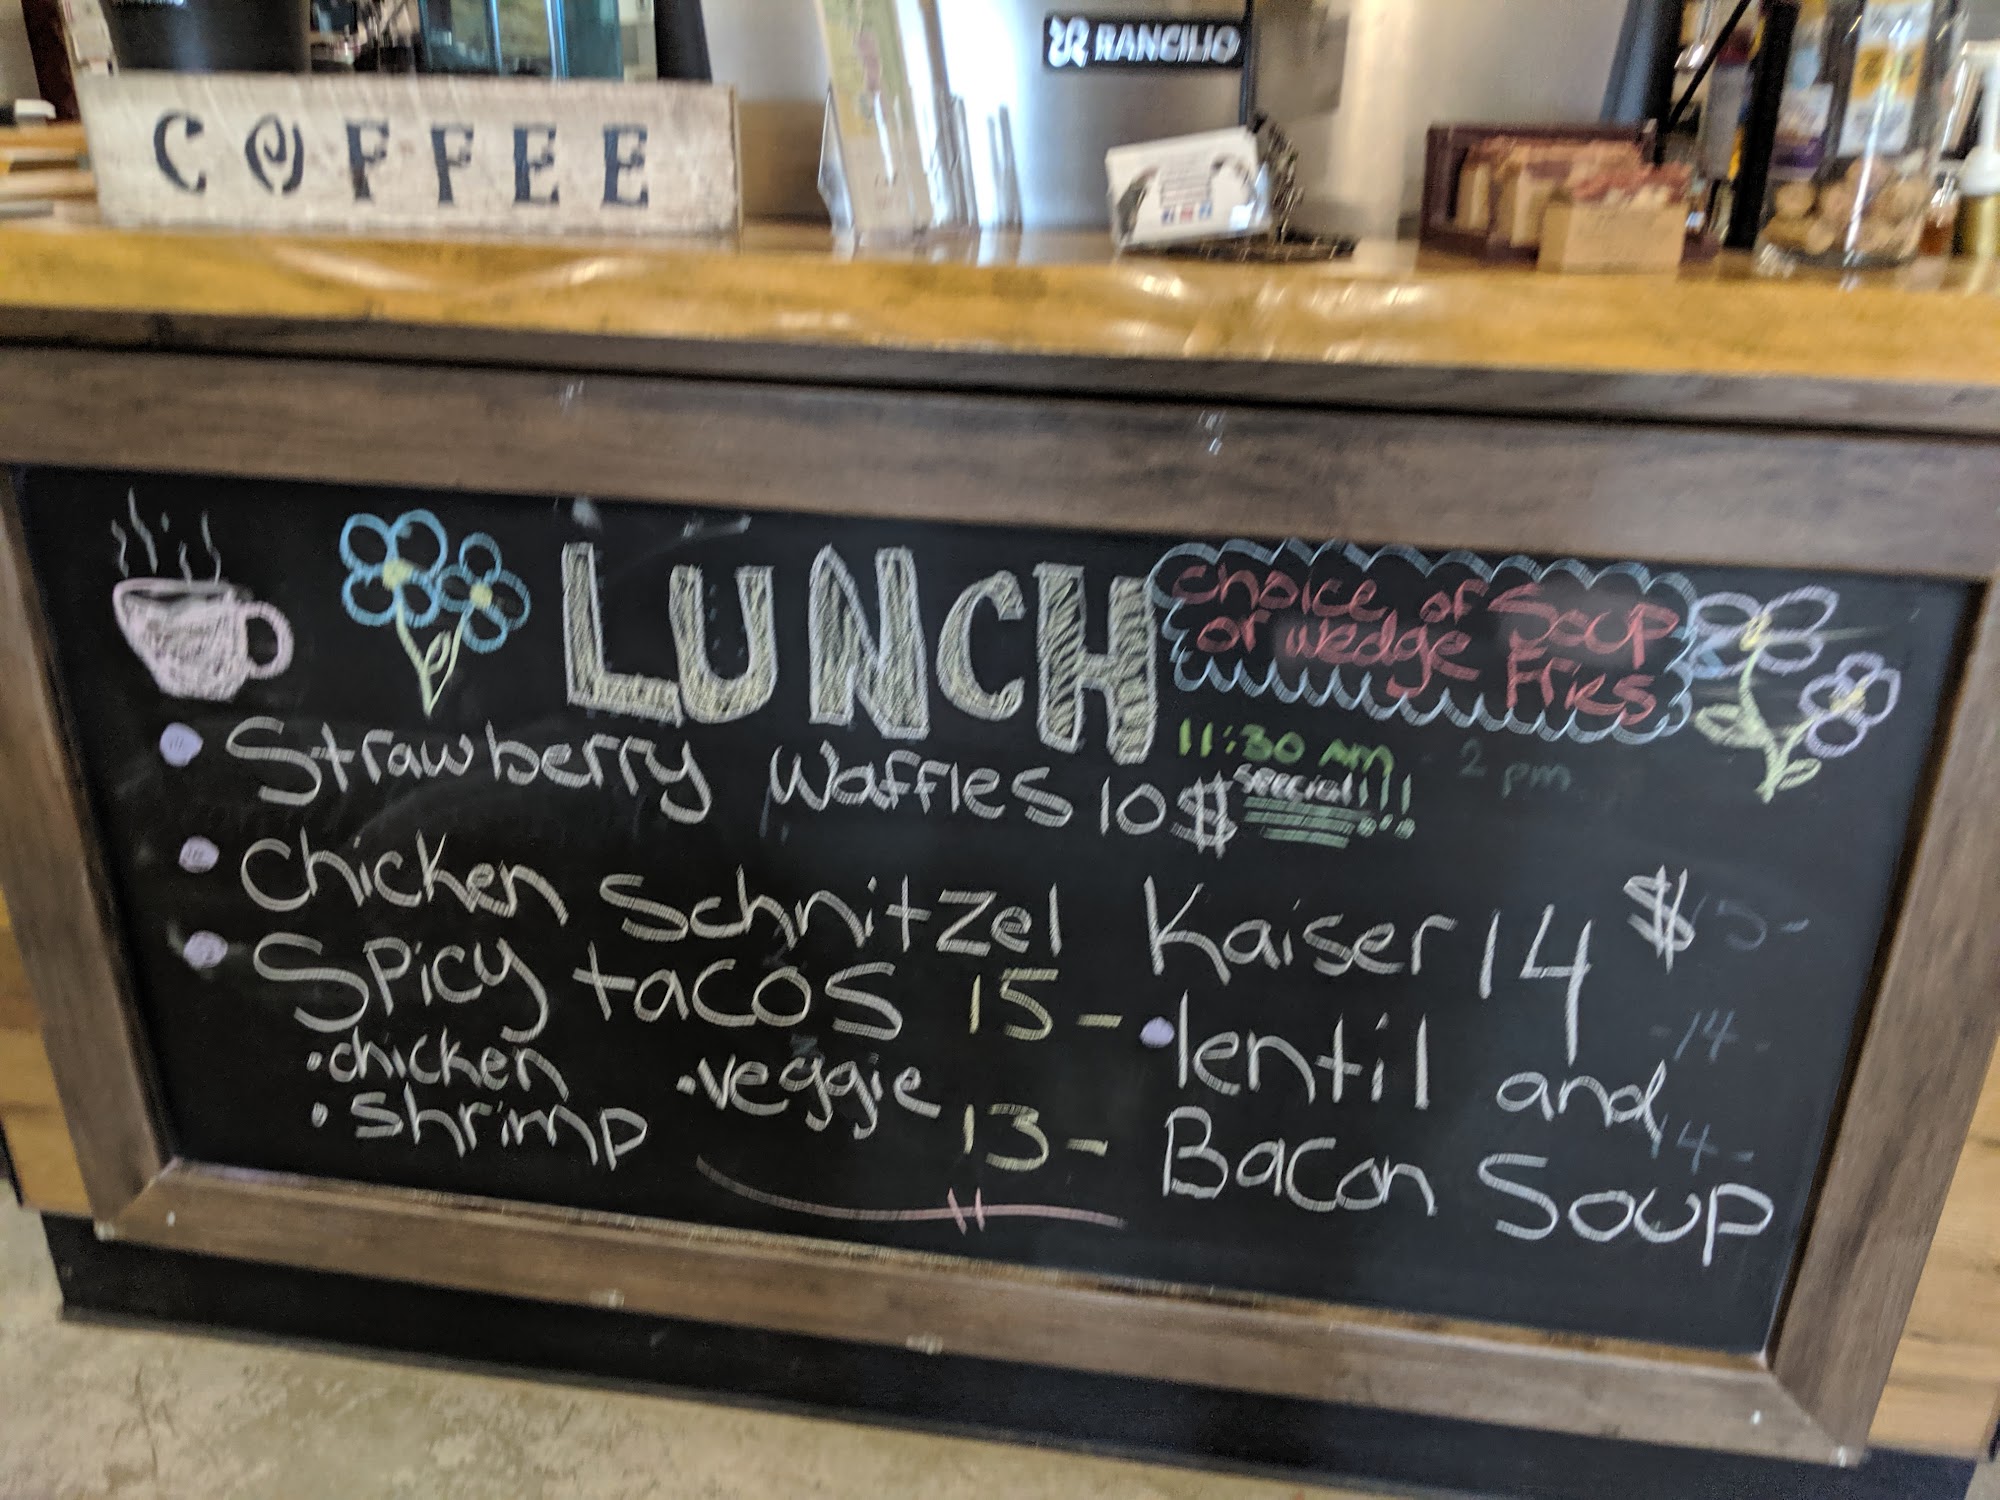 COFFEE
RANCILIO
LUNCH
choice of Soup
or wedge Fries
11:30 AM - 2 pm
• Strawberry Waffles 10$ Special!!!
• Chicken Schnitzel Kaiser 14 $
• Spicy tacos 15 -
• chicken • veggie
• shrimp 13 -
• lentil and
Bacon Soup
-14-